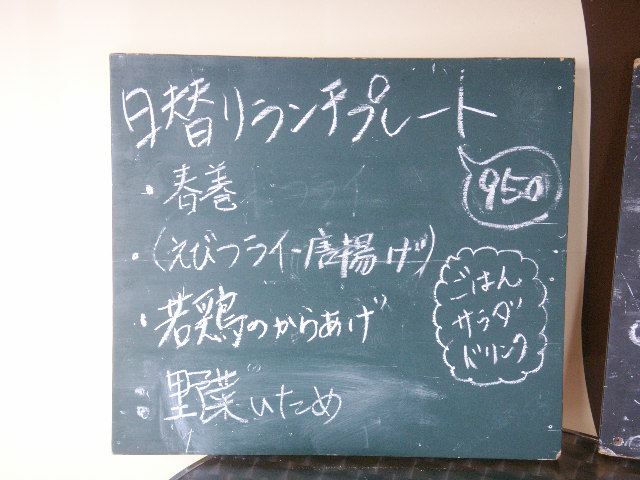 日替りランチプレート
950
・春巻
・(えびフライ・唐揚げ)
・若鶏のからあげ
・野菜いため
ごはん
サラダ
ドリンク